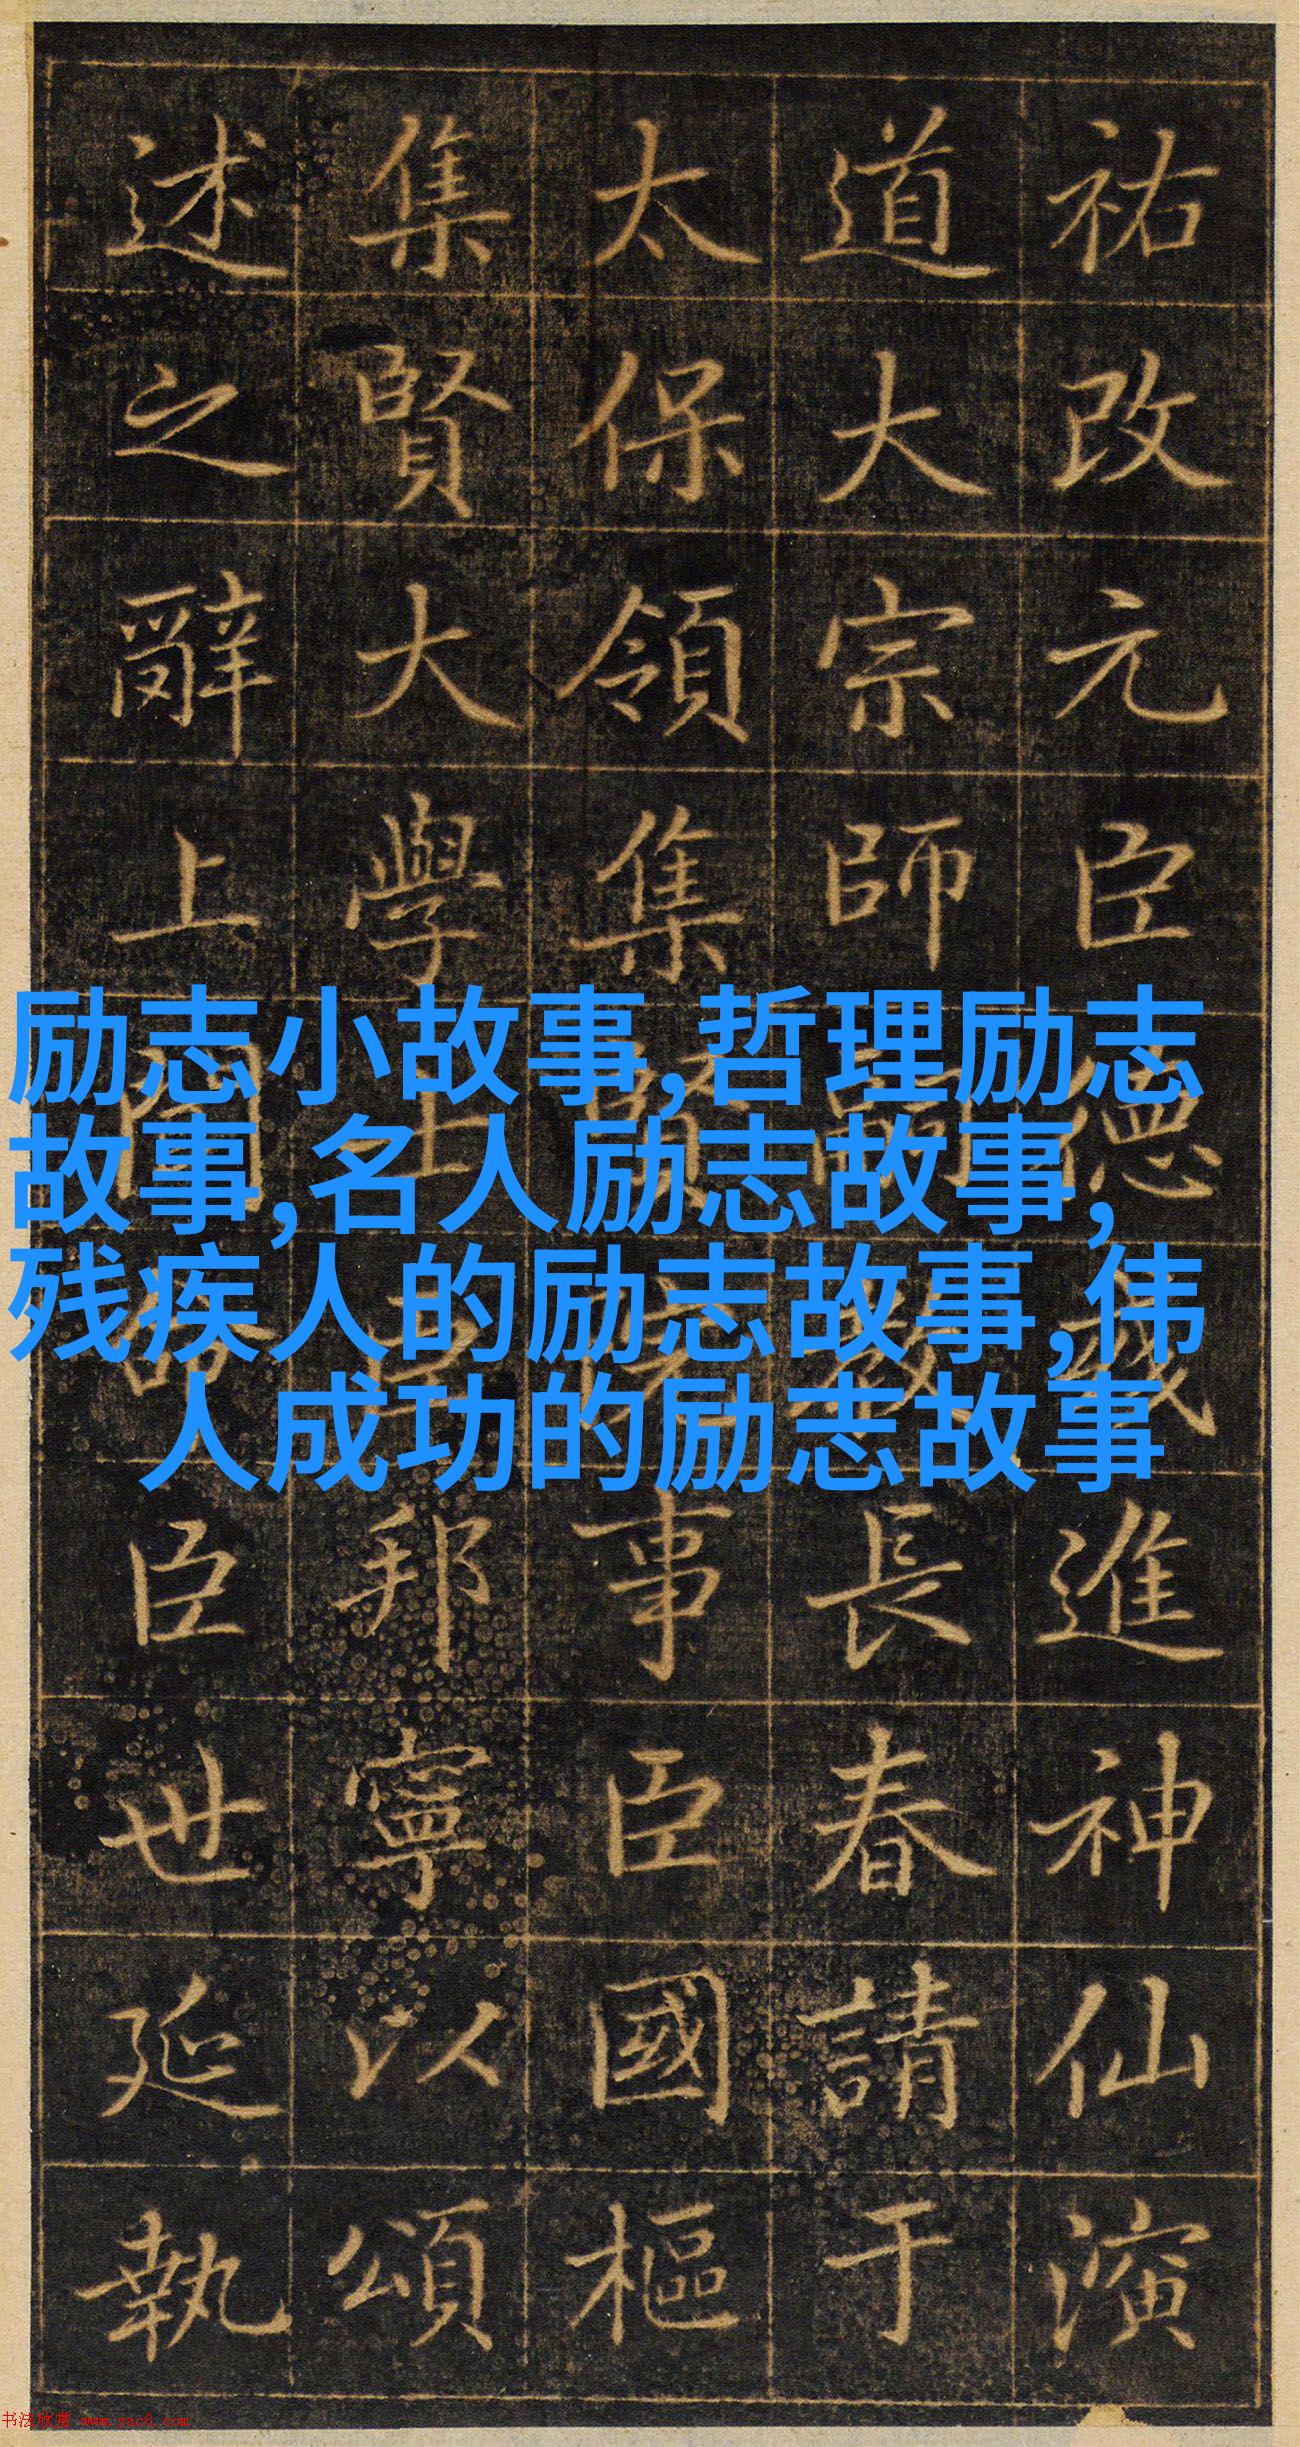 祐改元臣德進神仙演
道大宗師嗣教長春請于
太保領集賢院事臣國樞
集賢大學士臣邦寧以頌
述之辭上聞命臣世延執
励志小故事,哲理励志
故事,名人励志故事,
残疾人的励志故事,伟
人成功的励志故事
书法欣赏 www.yac8.com